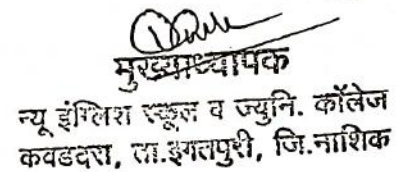 मुख्याध्यापक
न्यू इंग्लिश स्कूल व ज्युनि. कॉलेज
कवडदरा, ता.इगतपुरी, जि.नाशिक